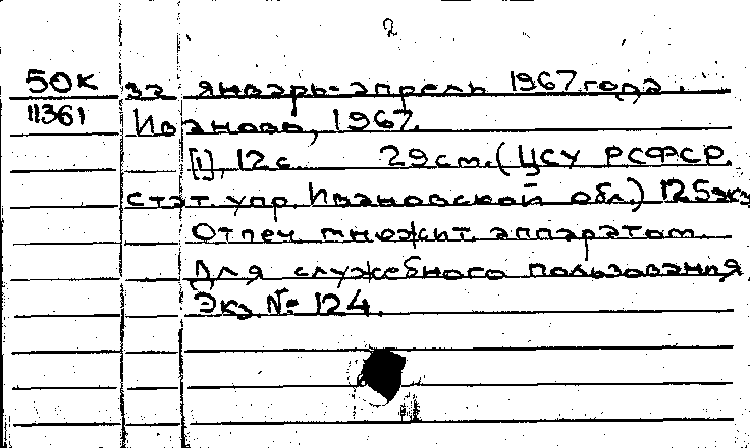 2
50К за январь-апрель 1967 года.
11361 Иваново, 1967.
[1], 12 с. 29 см. (ЦСУ РСФСР.
Стат. упр. Ивановской обл.) 125 экз
Отпеч. множит. аппаратом.
Для служебного пользования.
Экз. № 124.